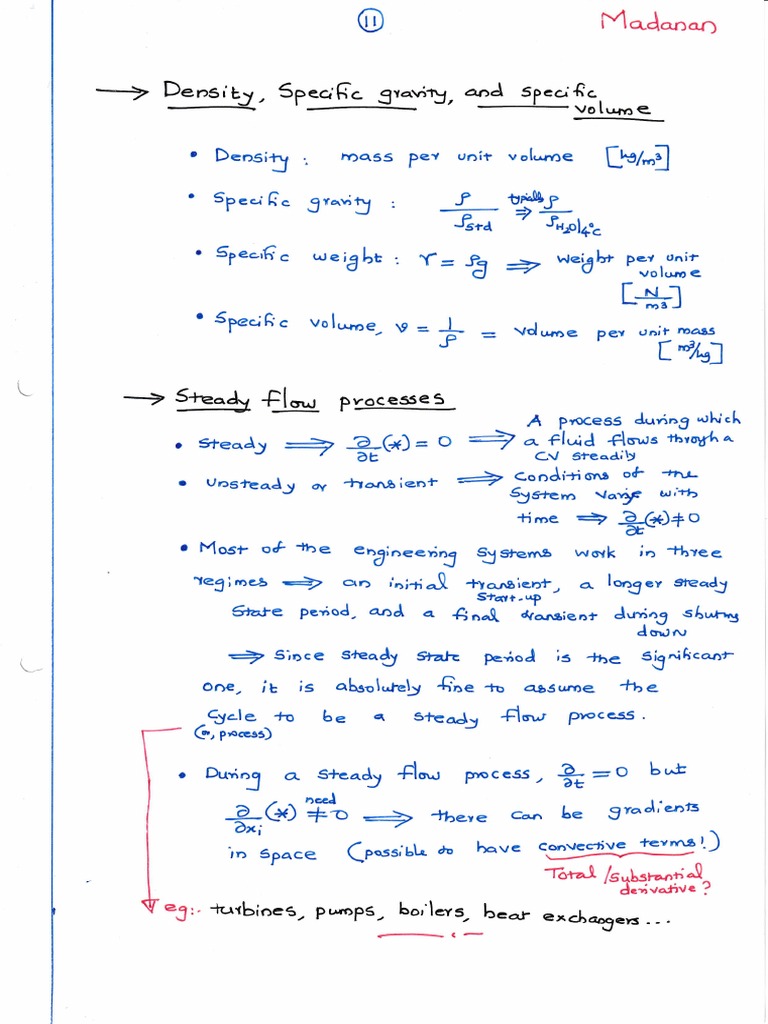 11
Madanan
→ Density, Specific gravity, and specific
volume
• Density : mass per unit volume [kg/m³]
• Specific gravity : ρ/ρstd typically ⇒ ρ/ρH2O|4°C
• Specific weight : γ = ρg ⇒ weight per unit
volume
[N/m³]
• Specific volume, v = 1/ρ = volume per unit mass
[m³/kg]
→ Steady flow processes
• steady ⇒ ∂/∂t (*) = 0 ⇒ A process during which
a fluid flows through a
CV steadily
• Unsteady or transient ⇒ conditions of the
system vary with
time ⇒ ∂/∂t (*) ≠ 0
• Most of the engineering systems work in three
regimes ⇒ an initial transient, a longer steady
start-up
state period, and a final transient during shutting
down
⇒ Since steady state period is the significant
one, it is absolutely fine to assume the
cycle to be a steady flow process.
(or, process)
• During a steady flow process, ∂/∂t = 0 but
∂/∂xi (*) need ≠ 0 ⇒ there can be gradients
in space (possible to have convective terms!)
Total /substantial
derivative?
eg:- turbines, pumps, boilers, heat exchangers...